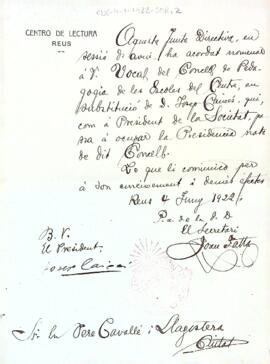 CENTRO DE LECTURA
REUS
Aquesta Junta Directiva, en
sessió d'avui, ha acordat nomenar
a V. Vocal del Consell de Peda-
gogia de les Escoles del Centre, en
substitució de D. Josep Caixés, qui,
com a President de la Societat, pa
ssa a ocupar la Presidencia nata
de dit Consell.
Lo que li comunico per
a son coneixement i demés efectes
Reus 4 Juny 1922
P. a. de la J. D.
El Secretari
B. V.
El President
Sr. En Pere Cavallé i Llagostera
Ciutat